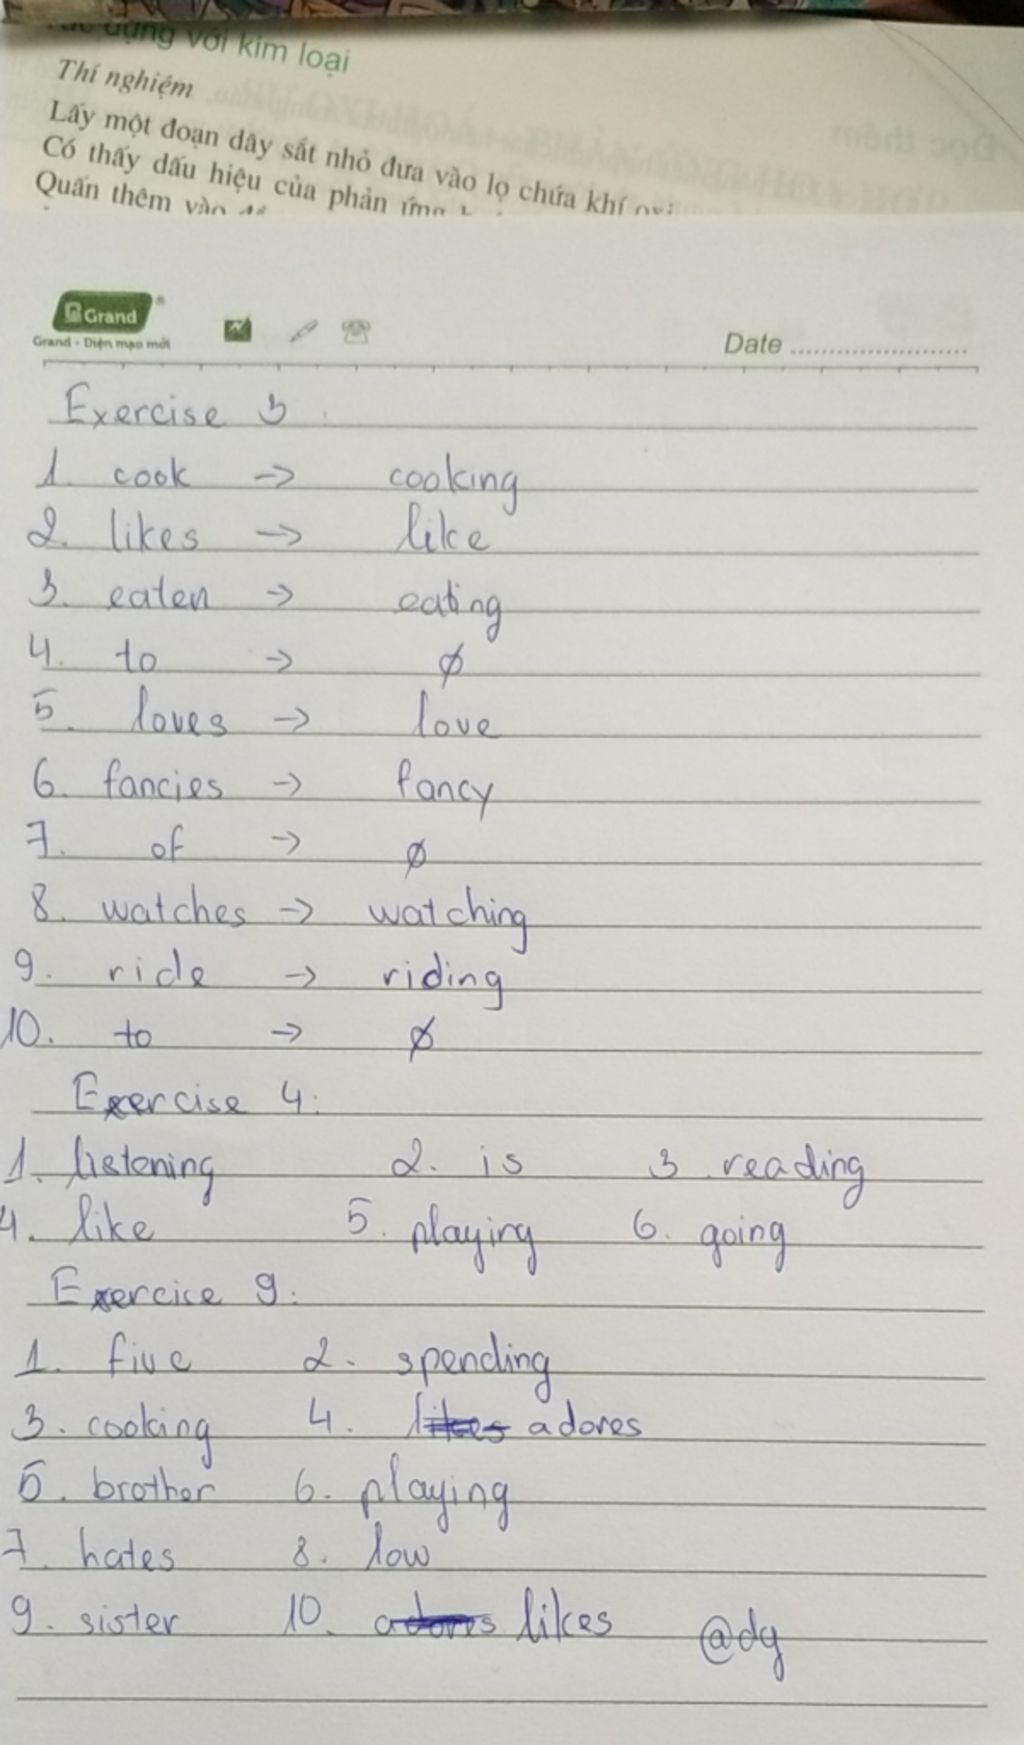 dụng với kim loại
Thí nghiệm
Lấy một đoạn dây sắt nhỏ đưa vào lọ chứa khí oxi
Có thấy dấu hiệu của phản ứng
Quấn thêm vào
Đọc thêm
Grand
Grand - Diện mạo mới
Date
Exercise 3:
1. cook -> cooking
2. likes -> like
3. eaten -> eating
4. to -> Ø
5. loves -> love
6. fancies -> fancy
7. of -> Ø
8. watches -> watching
9. ride -> riding
10. to -> Ø
Exercise 4:
1. listening 2. is 3. reading
4. like 5. playing 6. going
Exercise 9:
1. five 2. spending
3. cooking 4. likes adores
5. brother 6. playing
7. hates 8. low
9. sister 10. adores likes @dg